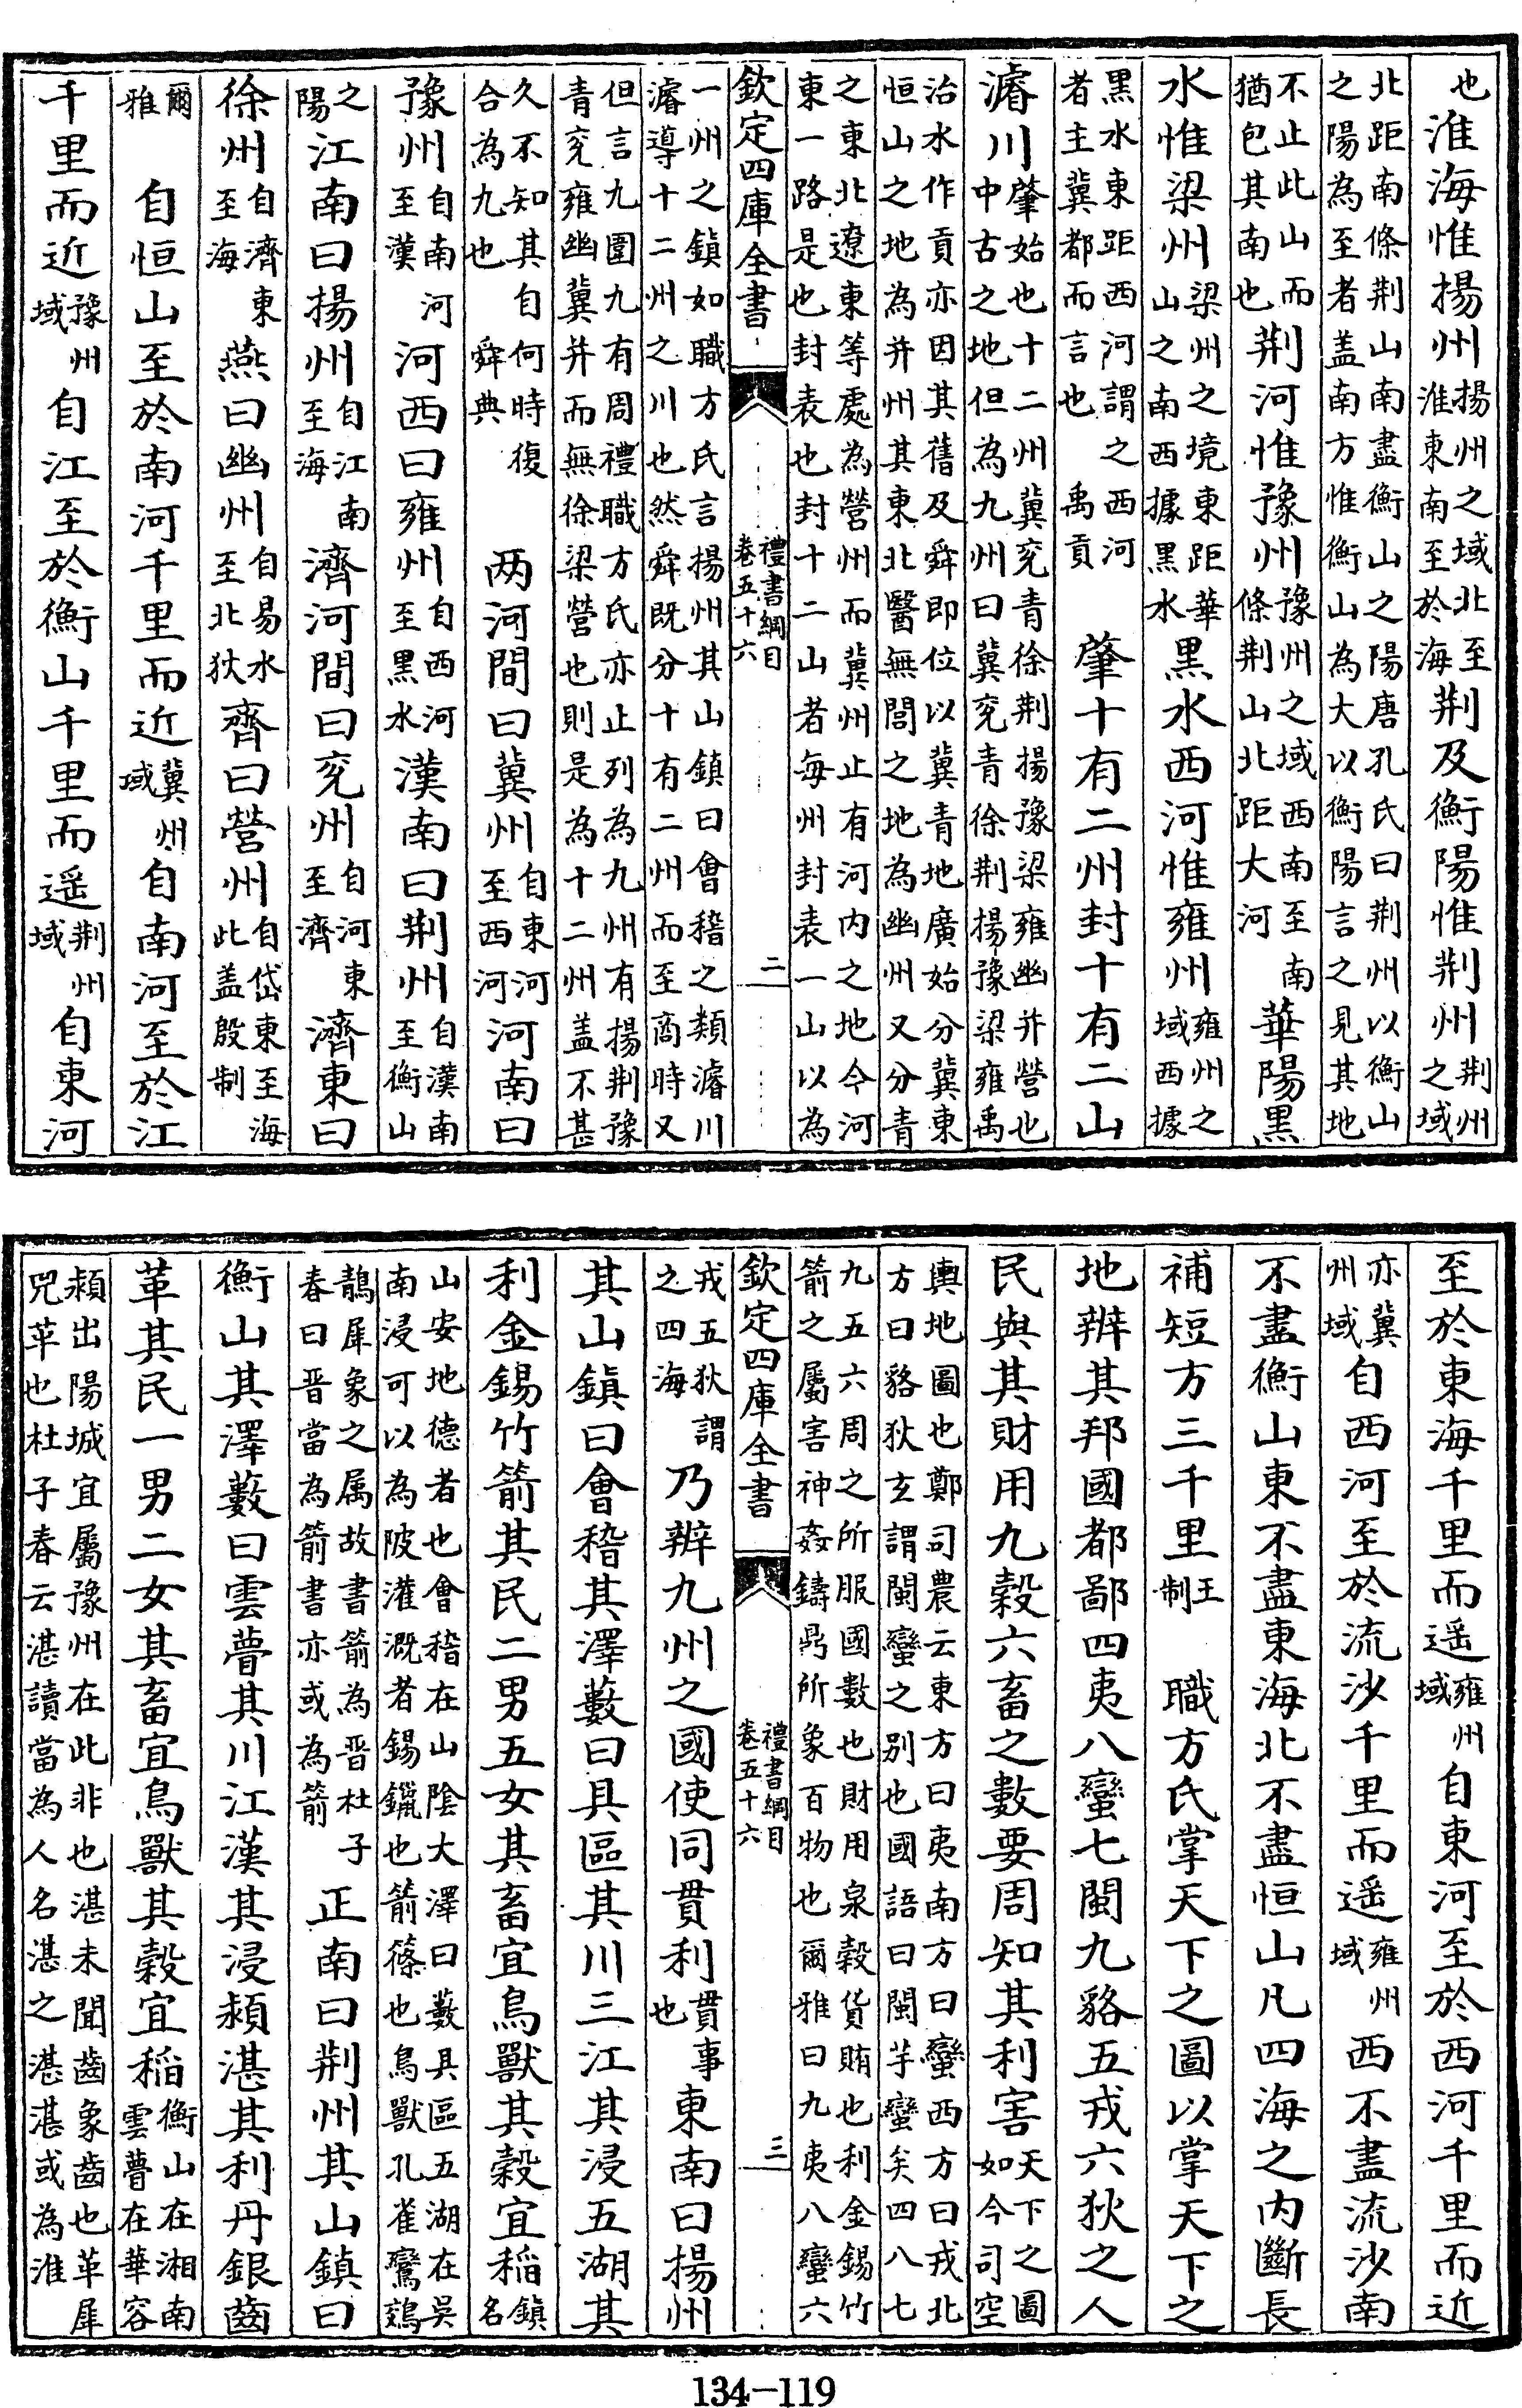 也淮海惟揚州揚州之域北至淮東南至於海荆及衡陽惟荆州荆州之域
北距南條荆山南盡衡山之陽唐孔氏曰荆州以衡山
之陽為至者盖南方惟衡山為大以衡陽言之見其地
不止此山而猶包其南也荆河惟豫州豫州之域西南至南條荆山北距大河華陽黑
水惟梁州梁州之境東距華山之南西據黑水黑水西河惟雍州雍州之域西據
黑水東距西河謂之西河者主冀都而言也禹貢 肇十有二州封十有二山
濬川肇始也十二州冀兖青徐荆揚豫梁雍幽并營也中古之地但為九州曰冀兖青徐荆揚豫梁雍禹
治水作貢亦因其舊及舜即位以冀青地廣始分冀東
恒山之地為并州其東北醫無閭之地為幽州又分青
之東北遼東等處為營州而冀州止有河内之地今河
東一路是也封表也封十二山者每州封表一山以為
欽定四庫全書 禮書綱目 卷五十六 二
一州之鎮如職方氏言揚州其山鎮曰會稽之類濬川
濬導十二州之川也然舜既分十有二州而至商時又
但言九圍九有周禮職方氏亦止列為九州有揚荆豫
青兖雍幽冀并而無徐梁營也則是為十二州盖不甚
久不知其自何時復合為九也舜典 两河間曰冀州自東河至西河河南曰
豫州自南河至漢河西曰雍州自西河至黑水漢南曰荆州自漢南至衡山
之陽江南曰揚州自江南至海濟河間曰兖州自河東至濟濟東曰
徐州自濟東至海燕曰幽州自易水至北狄齊曰營州自岱東至海此盖殷制
爾雅 自恒山至於南河千里而近冀州域自南河至於江
千里而近豫州域自江至於衡山千里而遥荆州域自東河
至於東海千里而遥雍州域自東河至於西河千里而近
亦冀州域自西河至於流沙千里而遥雍州域西不盡流沙南
不盡衡山東不盡東海北不盡恒山凡四海之内斷長
補短方三千里王制 職方氏掌天下之圖以掌天下之
地辨其邦國都鄙四夷八蠻七閩九貉五戎六狄之人
民與其財用九穀六畜之數要周知其利害天下之圖如今司空
輿地圖也鄭司農云東方曰夷南方曰蠻西方曰戎北
方曰貉狄玄謂閩蠻之別也國語曰閩芊蠻矣四八七
九五六周之所服國數也財用泉穀貨賄也利金錫竹
箭之屬害神姦鑄鼎所象百物也爾雅曰九夷八蠻六
欽定四庫全書 禮書綱目 卷五十六 三
戎五狄謂之四海乃辨九州之國使同貫利貫事也東南曰揚州
其山鎮曰會稽其澤藪曰具區其川三江其浸五湖其
利金錫竹箭其民二男五女其畜宜鳥獸其穀宜稻鎮名
山安地德者也會稽在山陰大澤曰藪具區五湖在吳
南浸可以為陂灌溉者錫鑞也箭篠也鳥獸孔雀鸞鵁
鶄犀象之属故書箭為晋杜子春曰晋當為箭書亦或為箭正南曰荆州其山鎮曰
衡山其澤藪曰雲瞢其川江漢其浸潁湛其利丹銀齒
革其民一男二女其畜宜鳥獸其穀宜稻衡山在湘南雲瞢在華容
潁出陽城宜屬豫州在此非也湛未聞齒象齒也革犀
兕革也杜子春云湛讀當為人名湛之湛湛或為淮
134-119